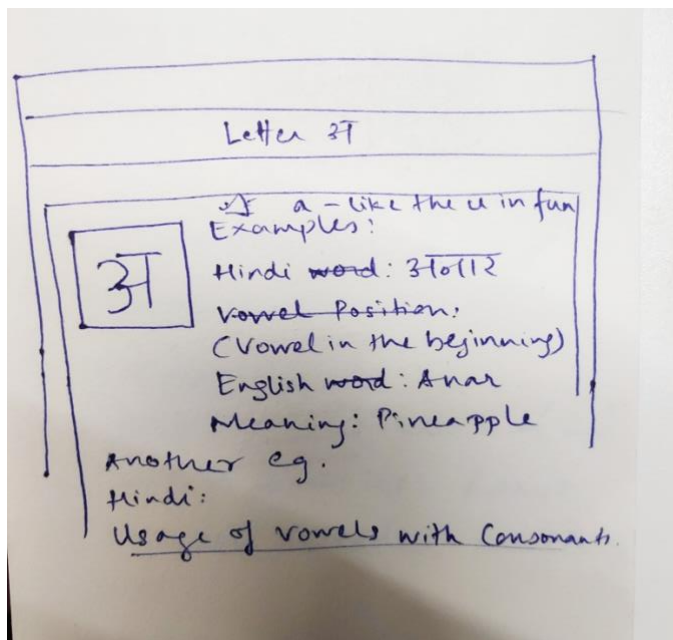 Letter अ
अ a - like the u in fun
Examples:
अ
Hindi word: अनार
Vowel Position:
(Vowel in the beginning)
English word: Anar
Meaning: Pineapple
Another eg.
Hindi:
Usage of vowels with Consonants.